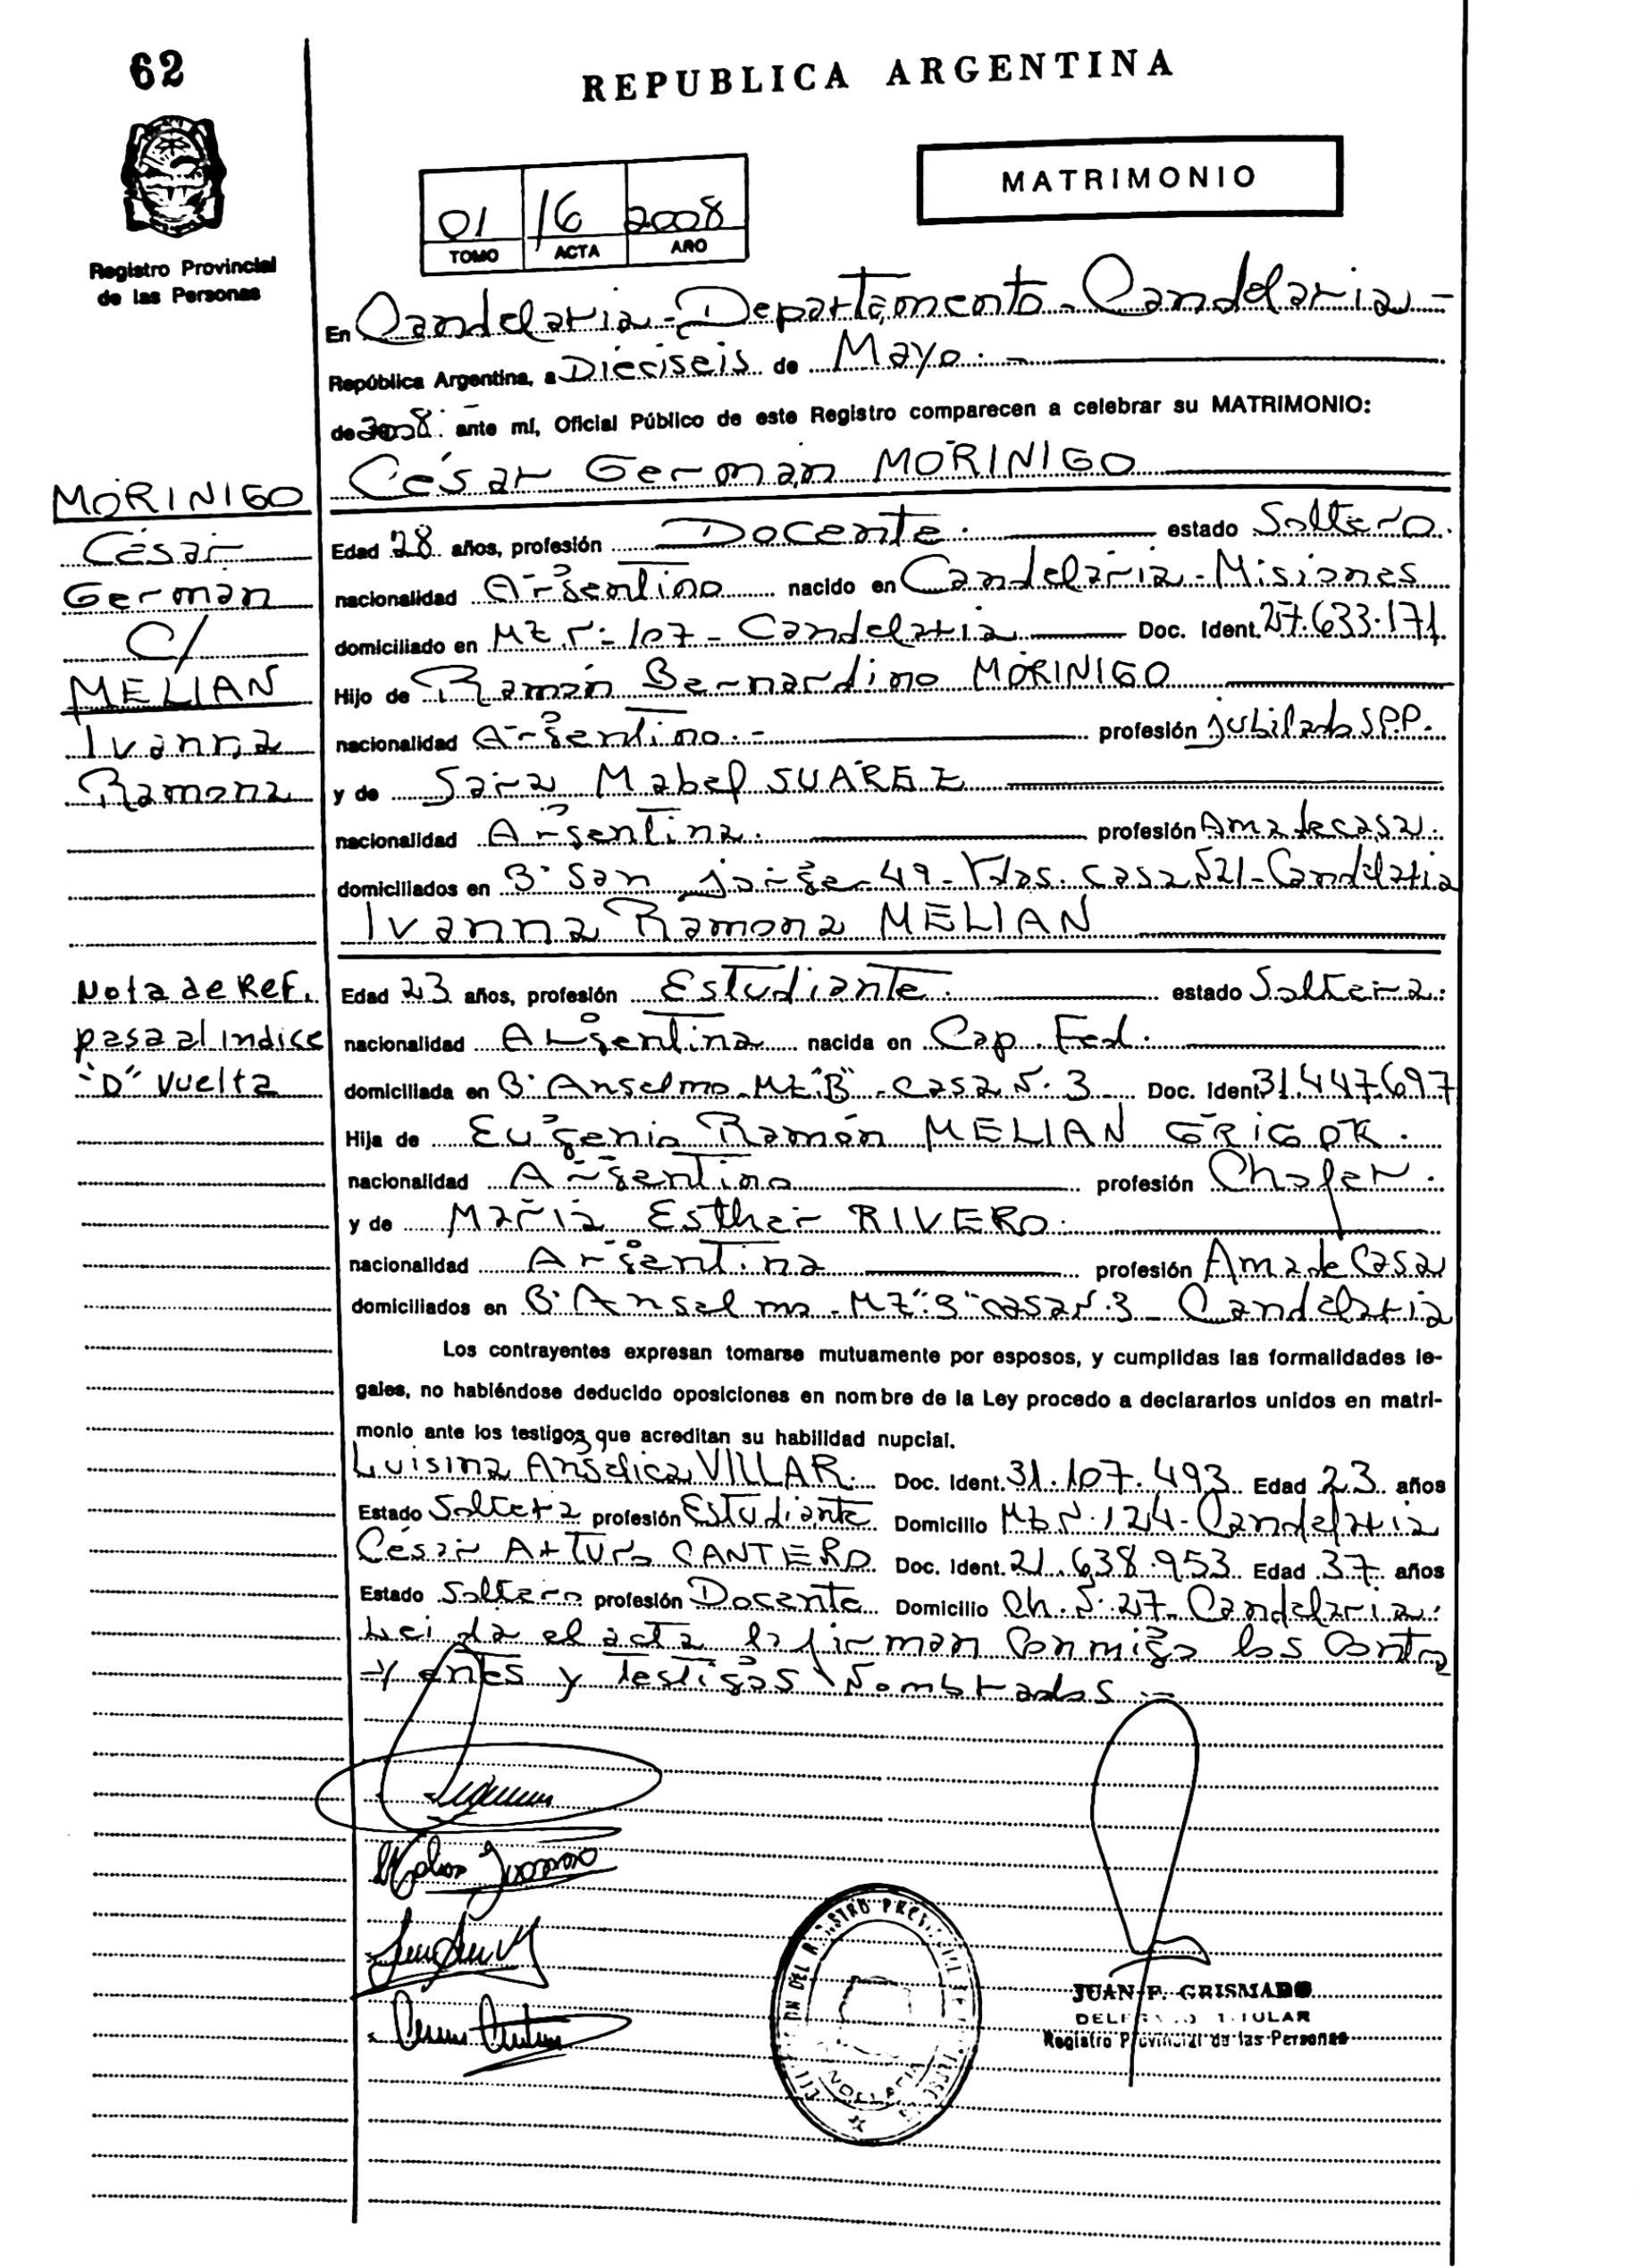 62
REPUBLICA ARGENTINA
MATRIMONIO
01 16 2008
TOMO ACTA AÑO
Registro Provincial
de las Personas
En Candelaria - Departamento - Candelaria -
República Argentina, a Dieciseis de Mayo. -
de 2008. ante mí, Oficial Público de este Registro comparecen a celebrar su MATRIMONIO:
César Germán MORINIGO
MORINIGO
César
Germán
C/
MELIAN
Ivanna
Ramona
Edad 28 años, profesión Docente. estado Soltero.
nacionalidad Argentino nacido en Candelaria - Misiones
domiciliado en Mz Nº 107 - Candelaria Doc. Ident. 27.633.171
Hijo de Ramón Bernardino MORINIGO
nacionalidad Argentino. - profesión jubilado S.P.P.
y de Sara Mabel SUAREZ
nacionalidad Argentina. profesión Ama de casa.
domiciliados en Bº San jorge - 49 - Vdas. casa Nº 21 - Candelaria
Ivanna Ramona MELIAN
Nota de Ref.
pasa al indice
"D" vuelta
Edad 23 años, profesión Estudiante. estado Soltera.
nacionalidad Argentina nacida en Cap. Fed.
domiciliada en Bº Anselmo - Mz "B" - casa Nº 3 Doc. Ident 31.447.697
Hija de Eugenio Ramón MELIAN
nacionalidad Argentino profesión Chofer.
y de María Esther RIVERO.
nacionalidad Argentina profesión Ama de Casa
domiciliados en Bº Anselmo - Mz "B" casa Nº 3 - Candelaria
Los contrayentes expresan tomarse mutuamente por esposos, y cumplidas las formalidades le-
gales, no habiéndose deducido oposiciones en nombre de la Ley procedo a declararlos unidos en matri-
monio ante los testigos que acreditan su habilidad nupcial.
Luisina Angélica VILLAR. Doc. Ident. 31.107.493 Edad 23 años
Estado Soltera profesión Estudiante Domicilio Mz Nº 124 - Candelaria
César Arturo CANTERO Doc. Ident. 21.638.953 Edad 37 años
Estado Soltero profesión Docente Domicilio Ch. Nº 27 - Candelaria.
Leida el acta la firman conmigo los contra
yentes y testigos Nombrados. -
JUAN F. GRISMADO
DELEGADO TITULAR
Registro Provincial de las Personas